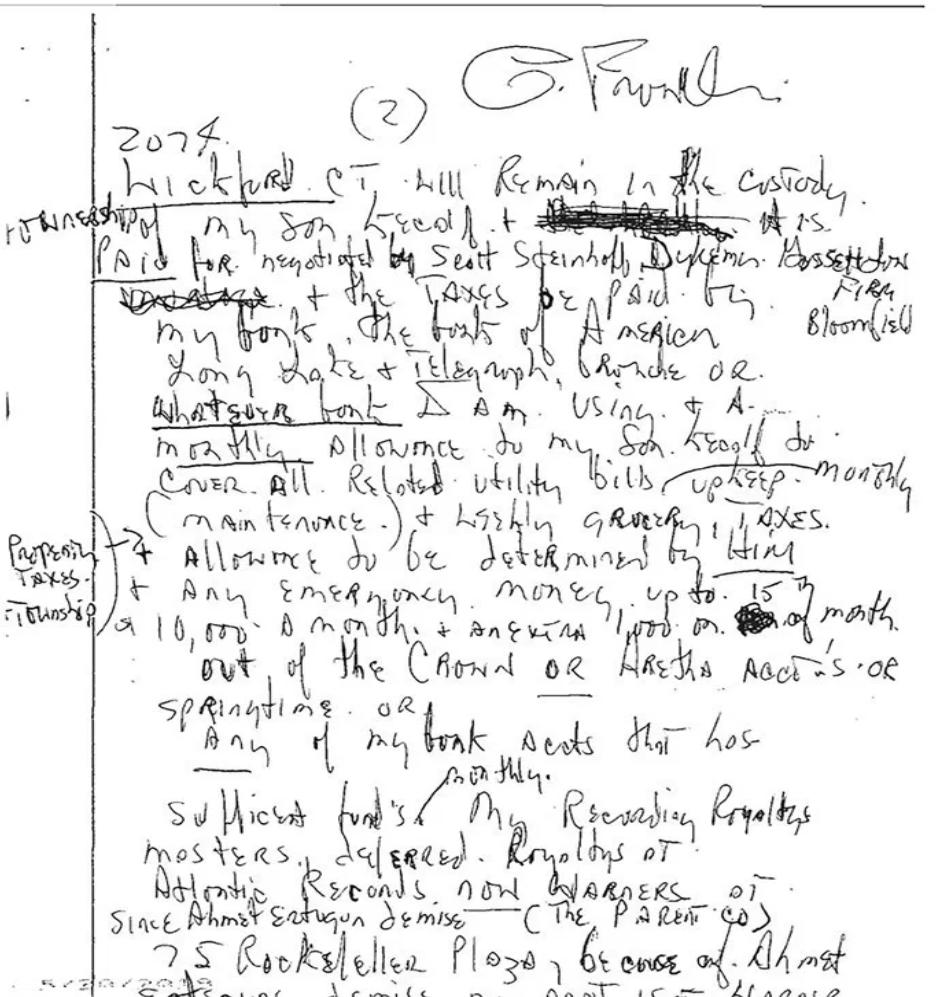 G. Franklin
(2)
2074
Wickford CT, will Remain in the custody
+ ownership of my Son Kecalf + it is
PAID for. negotiated by Scott Steinhoff, Dykema Gossett Law
FIRM
Bloomfield
+ the TAXES be PAID by
my bank, the bank of American
Long Lake + Telegraph, branche OR
whatever bank I Am. using + A
monthly Allowance to my Son Kecalf to
Cover All Related utility bills, upkeep monthly
(maintenance.) + weekly grocery, TAXES.
Property TAXES. Township
+ Allowance to be determined by Him
+ Any Emergency money up to 15
or 10,000 A month. + An extra 1,000 on of month
out of the CROWN OR Aretha Acct's OR
springtime OR
Any of my bank Accts that has
monthly.
Sufficent fund's. My Recording Royaltys
masters, deferred Royaltys AT
Atlantic Records now WARNERS AT
Since Ahmet Ertugun demise (The PARENT CO)
75 Rockefeller Plaza, because of Ahmet